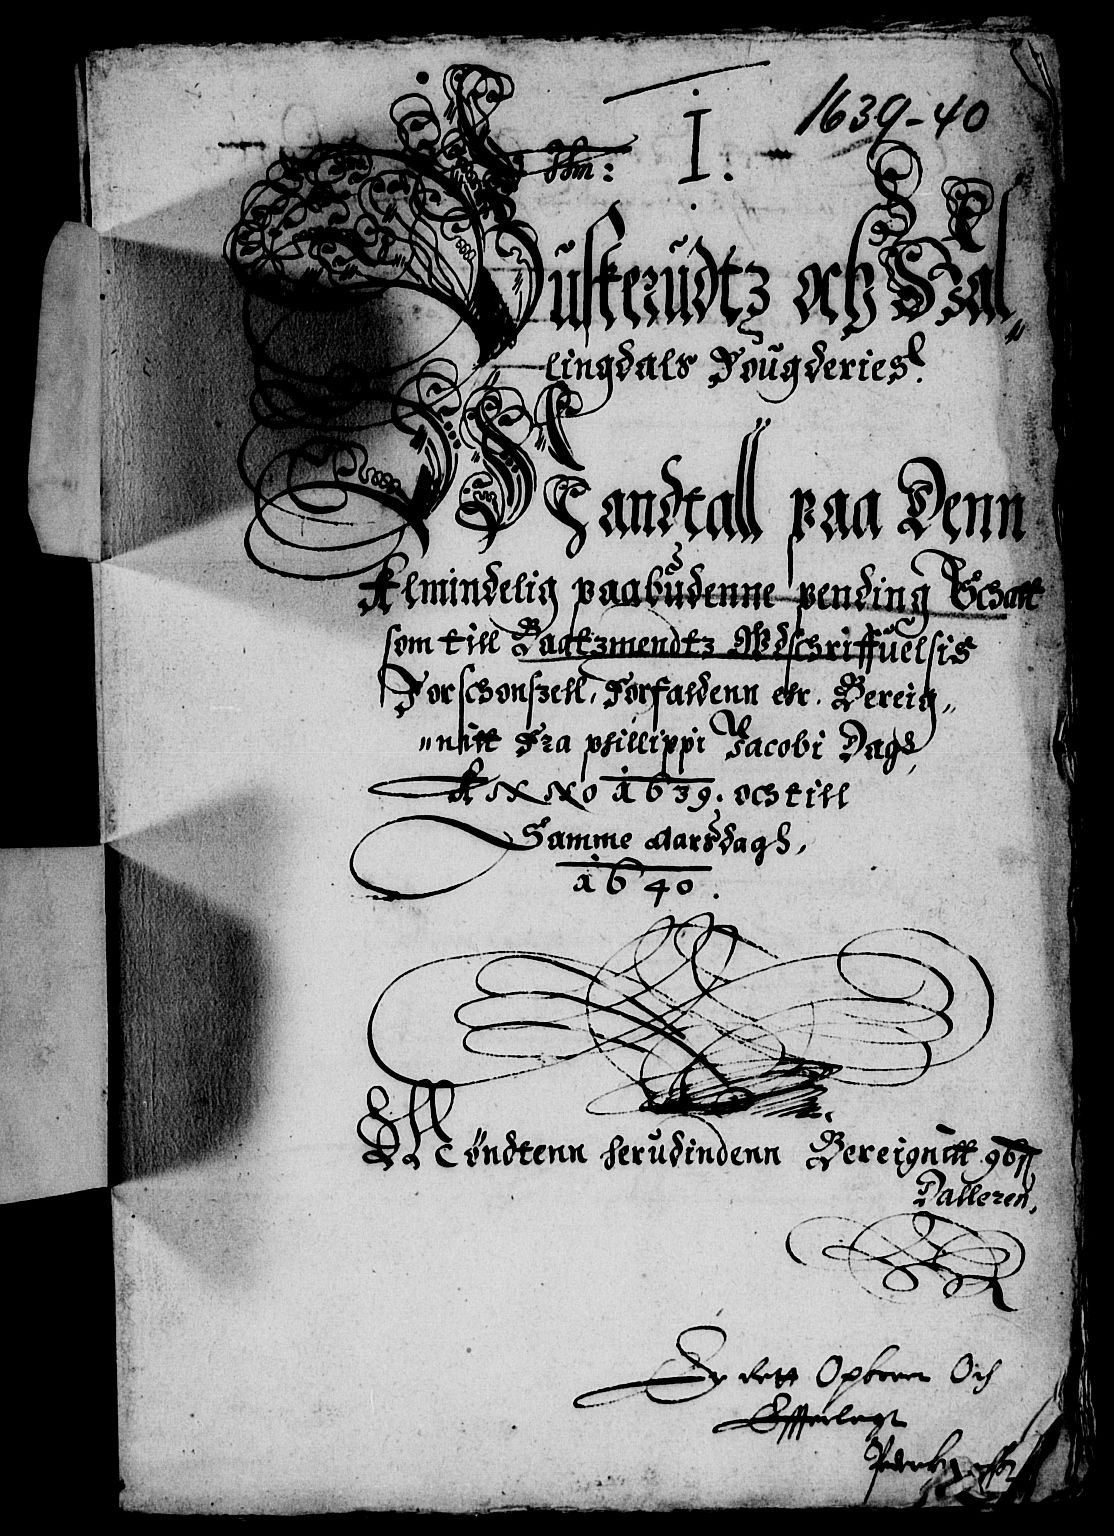 1639-40
I.
Büskerüdtz och Hal„
lingdals Foügderies.
Mandtall paa Denn
Almindelig paabüdenne pending Schatt
som till Baatzmendtz Wdschriffüelsis
Forschonszell, Forfaldenn ehr. Bereig„
„nitt Fra phillippi Jacobi Dagh
ANNO 1639. och till
Samme Aarsdagh,
1640.
Möndtenn herüdindenn Bereignitt
Dalleren,
Er dett Och
Efferlegt